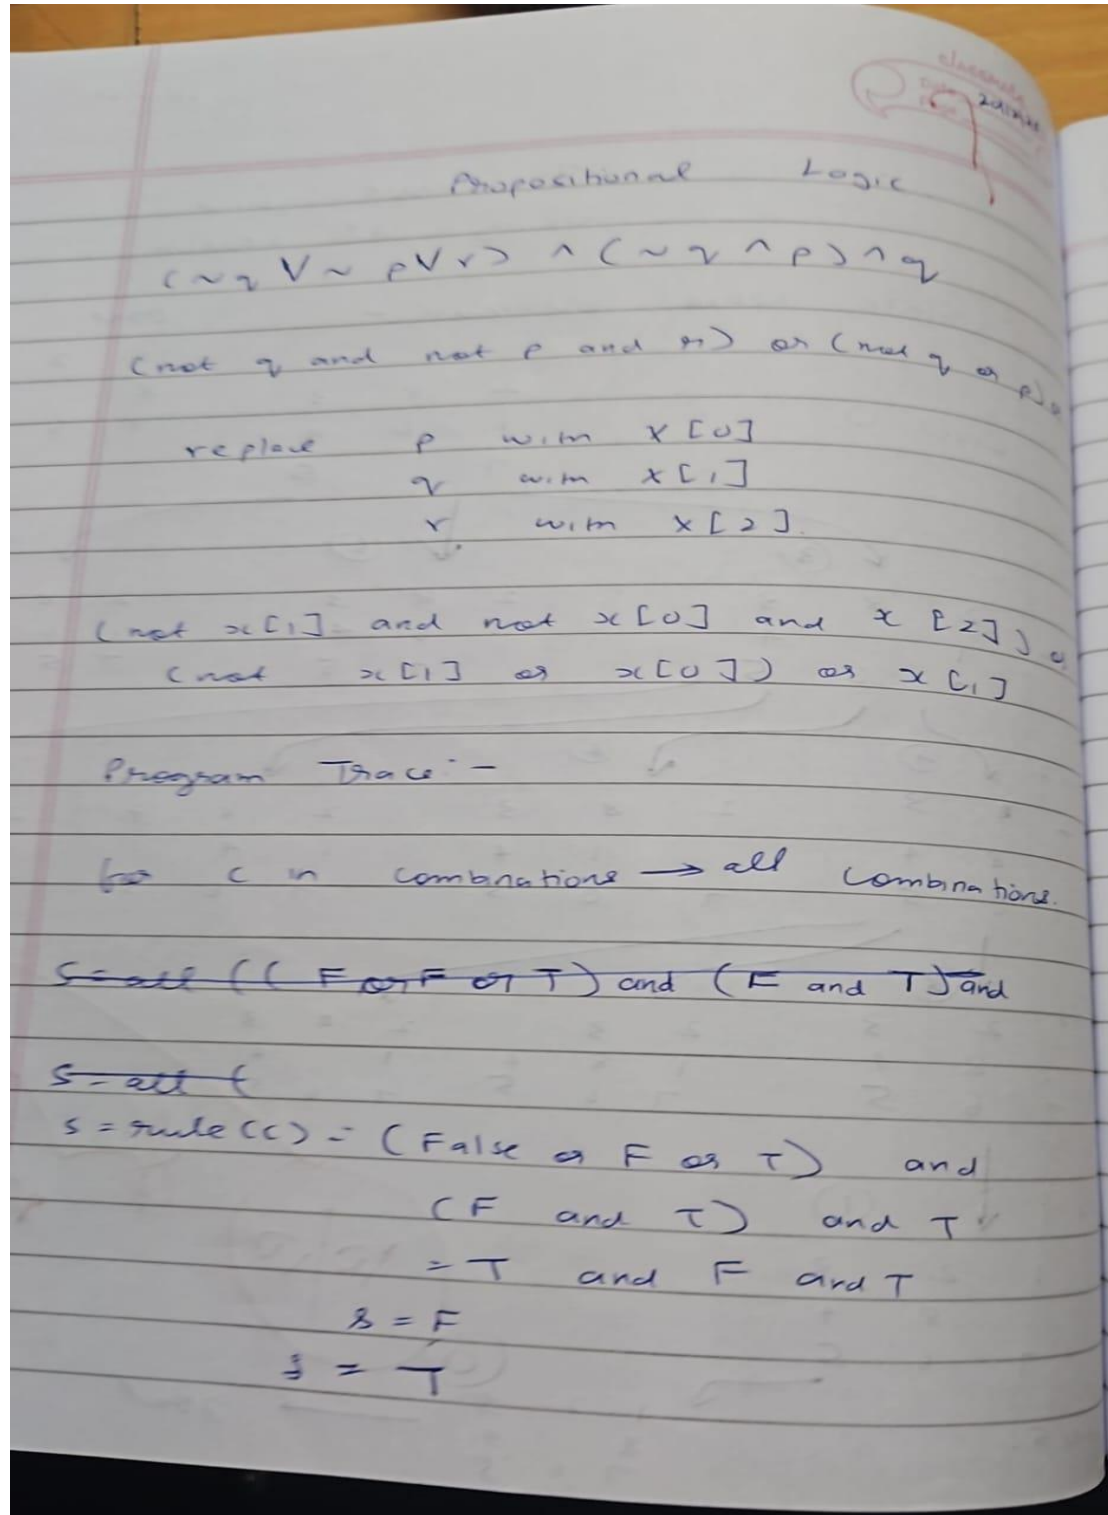 classmate
Date
Page
Propositional Logic
(~q V ~ p V r) ^ (~ q ^ p) ^ q
(not q and not p and r) or (not q or p) o
replace p with x[0]
q with x[1]
r with x[2].
(not x[1] and not x[0] and x[2]) o
(not x[1] or x[0]) or x[1]
Program Trace :-
for c in combinations → all combinations.
S = all ((F or F or T) and (F and T) and
S = all (
s = rule(c) = (False or F or T) and
(F and T) and T
= T and F and T
s = F
= T